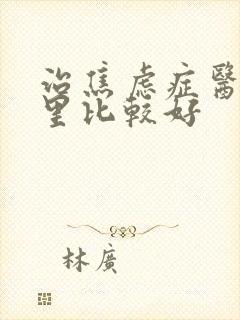 治焦虑症醫
里比較好
林廣